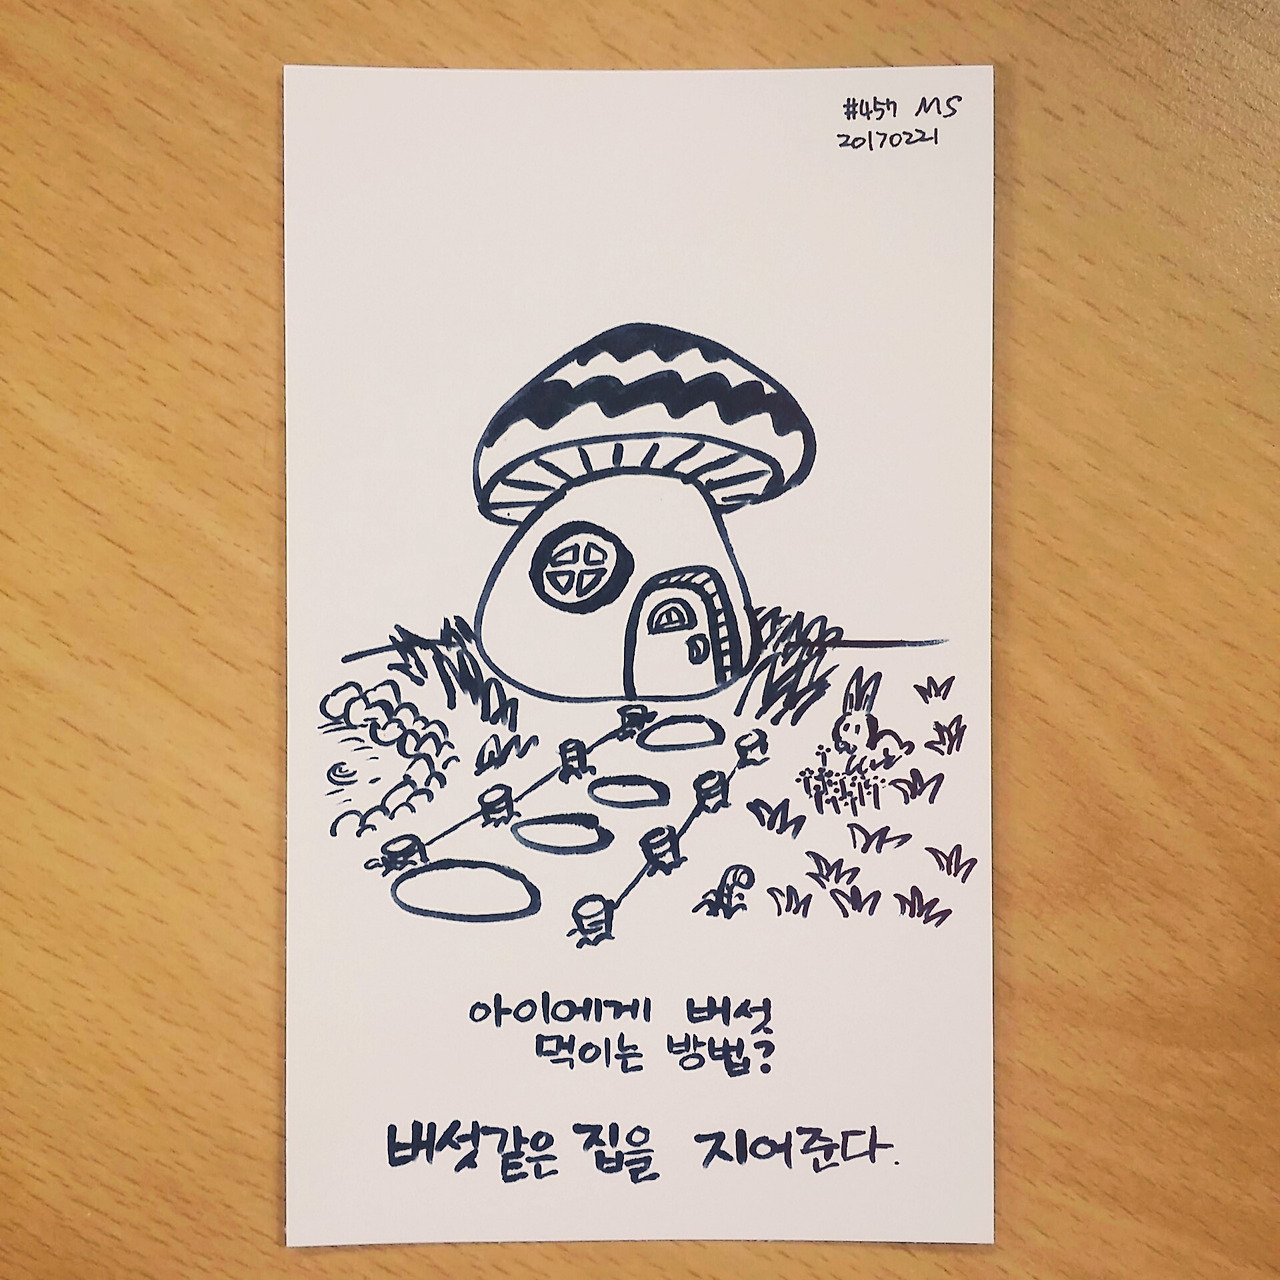 #457 MS
20170221
아이에게 버섯
먹이는 방법?
버섯같은 집을 지어준다.